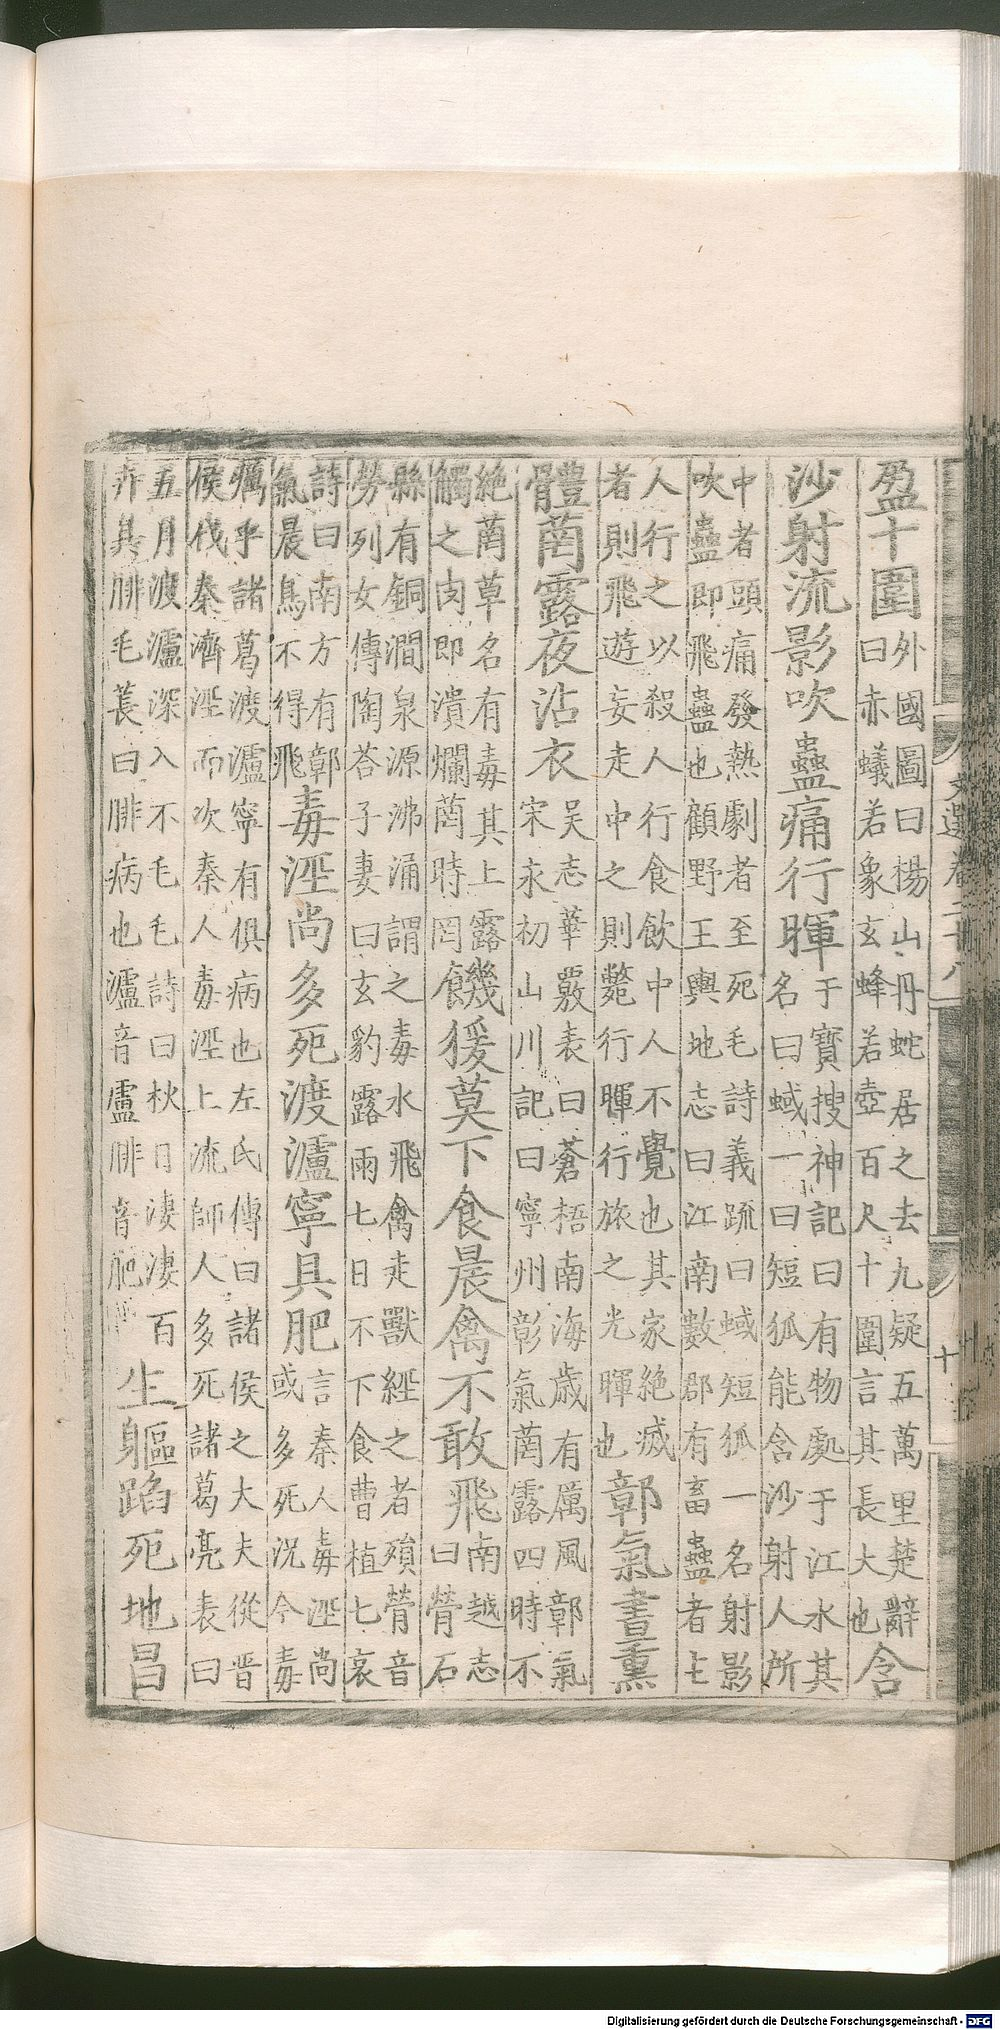 盈十圍外國圖曰楊山丹蛇居之去九疑五萬里楚辭
曰赤蟻若象玄蜂若壺百尺十圍言其長大也含
沙射流影吹蠱痛行暉于寶搜神記曰有物處于江水其
名曰蜮一曰短狐能含沙射人所
中者頭痛發熱劇者至死毛詩義疏曰蜮短狐一名射影
吹蠱即飛蠱也顧野王輿地志曰江南數郡有畜蠱者主
人行之以殺人人行食飲中人不覺也其家絕滅
者則飛遊妄走中之則斃行暉行旅之光暉也鄣氣晝熏
體䓘露夜沾衣吳志華覈表曰蒼梧南海歲有厲風鄣氣
宋永初山川記曰寧州彰氣䓘露四時不
絕䓘草名有毒其上露
觸之肉即潰爛䓘時罔饑猨莫下食晨禽不敢飛南越志
曰膋石
縣有銅澗泉源沸涌謂之毒水飛禽走獸經之者殞膋音
勞列女傳陶荅子妻曰玄豹露雨七日不下食曹植七哀
詩曰南方有鄣
氣晨鳥不得飛毒涇尚多死渡瀘寧具肥言秦人毒涇尚
或多死況今毒
癘乎諸葛渡瀘寧有俱病也左氏傳曰諸侯之大夫從晉
侯伐秦濟涇而次秦人毒涇上流師人多死諸葛亮表曰
五月渡瀘深入不毛毛詩曰秋日淒淒百
卉具腓毛萇曰腓病也瀘音盧腓音肥生軀蹈死地昌
文選卷二十八
十
Digitalisierung gefördert durch die Deutsche Forschungsgemeinschaft - DFG